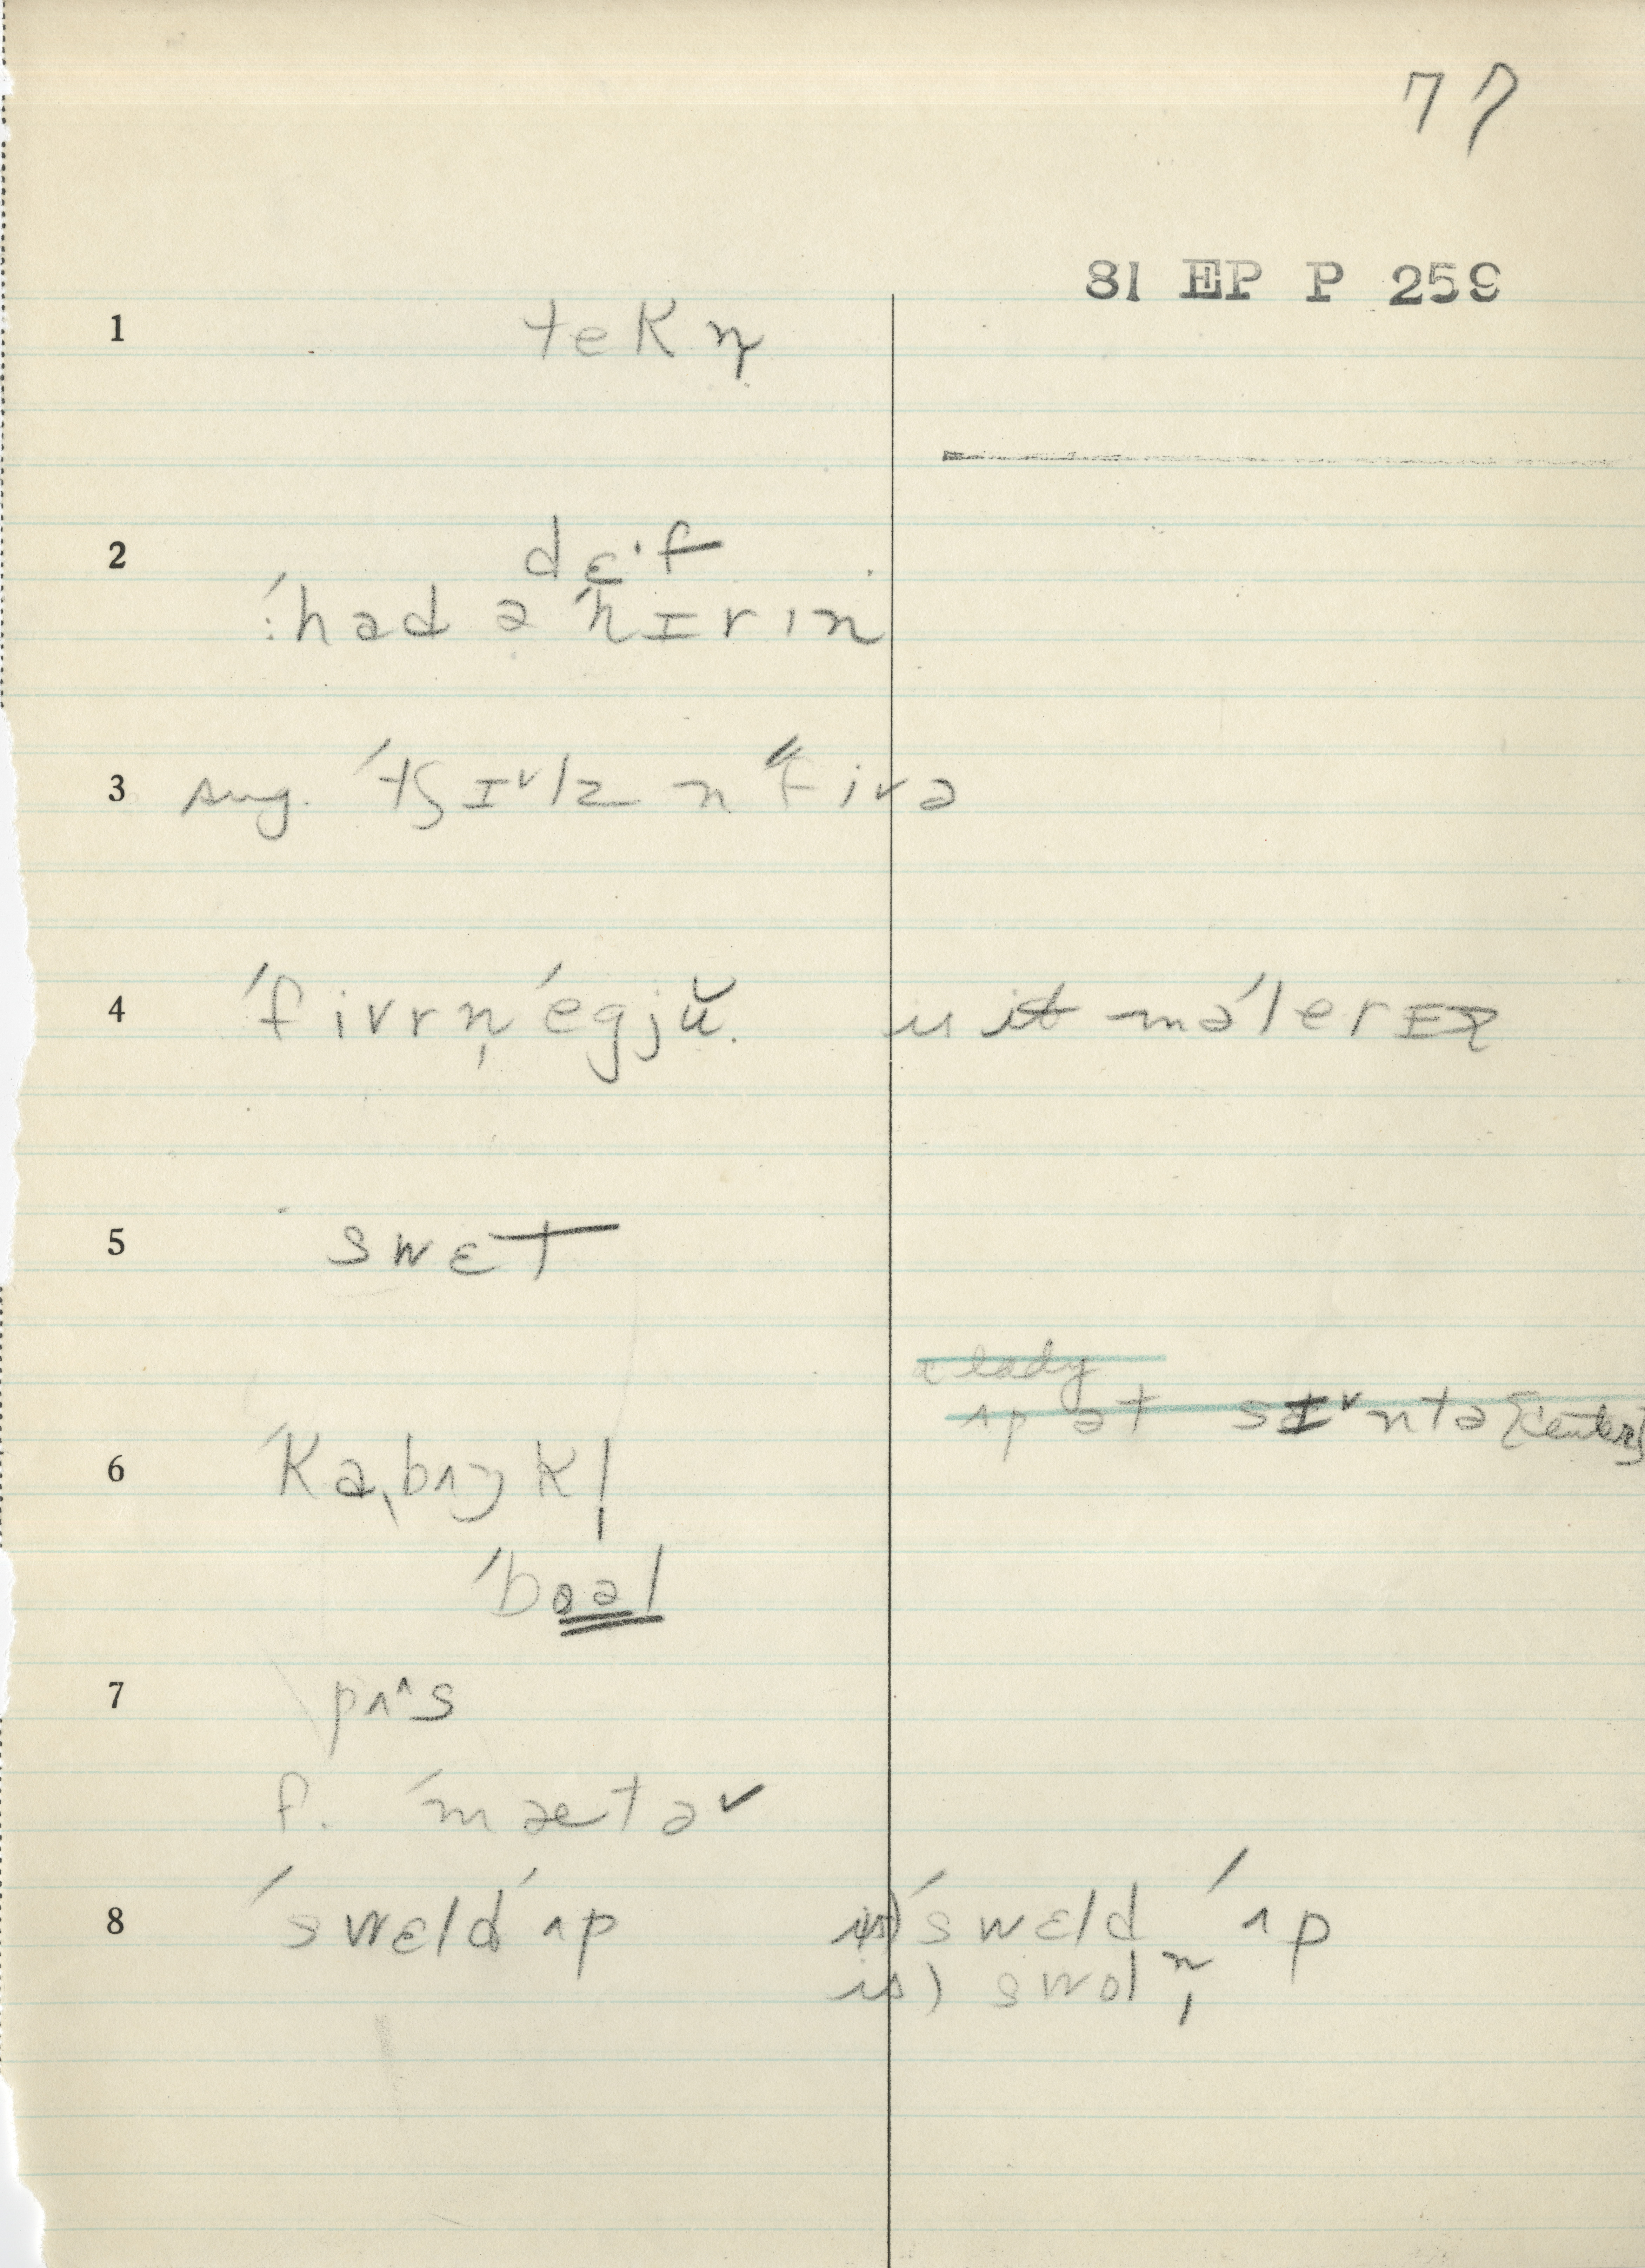 77
81 EP P 259
1 tekn̩
2 dɛ·f
:ˈhad ə ˈhɪrɪn
3 sug. ˈtʃɪᵛlz n ˈˈfivə
4 ˈfivrn̩ˈégjŭ. uit məˈlerɪə
5 swɛt
a lady
ʌp ət sɪᵛntə [center]
6 ˈkaˌbʌŋkl̩
ˈboəl
7 pʌ^s
f. ˈmætəv
8 ˈswɛldˈʌp is) ˈswɛld ˈʌp
is) swoln̩